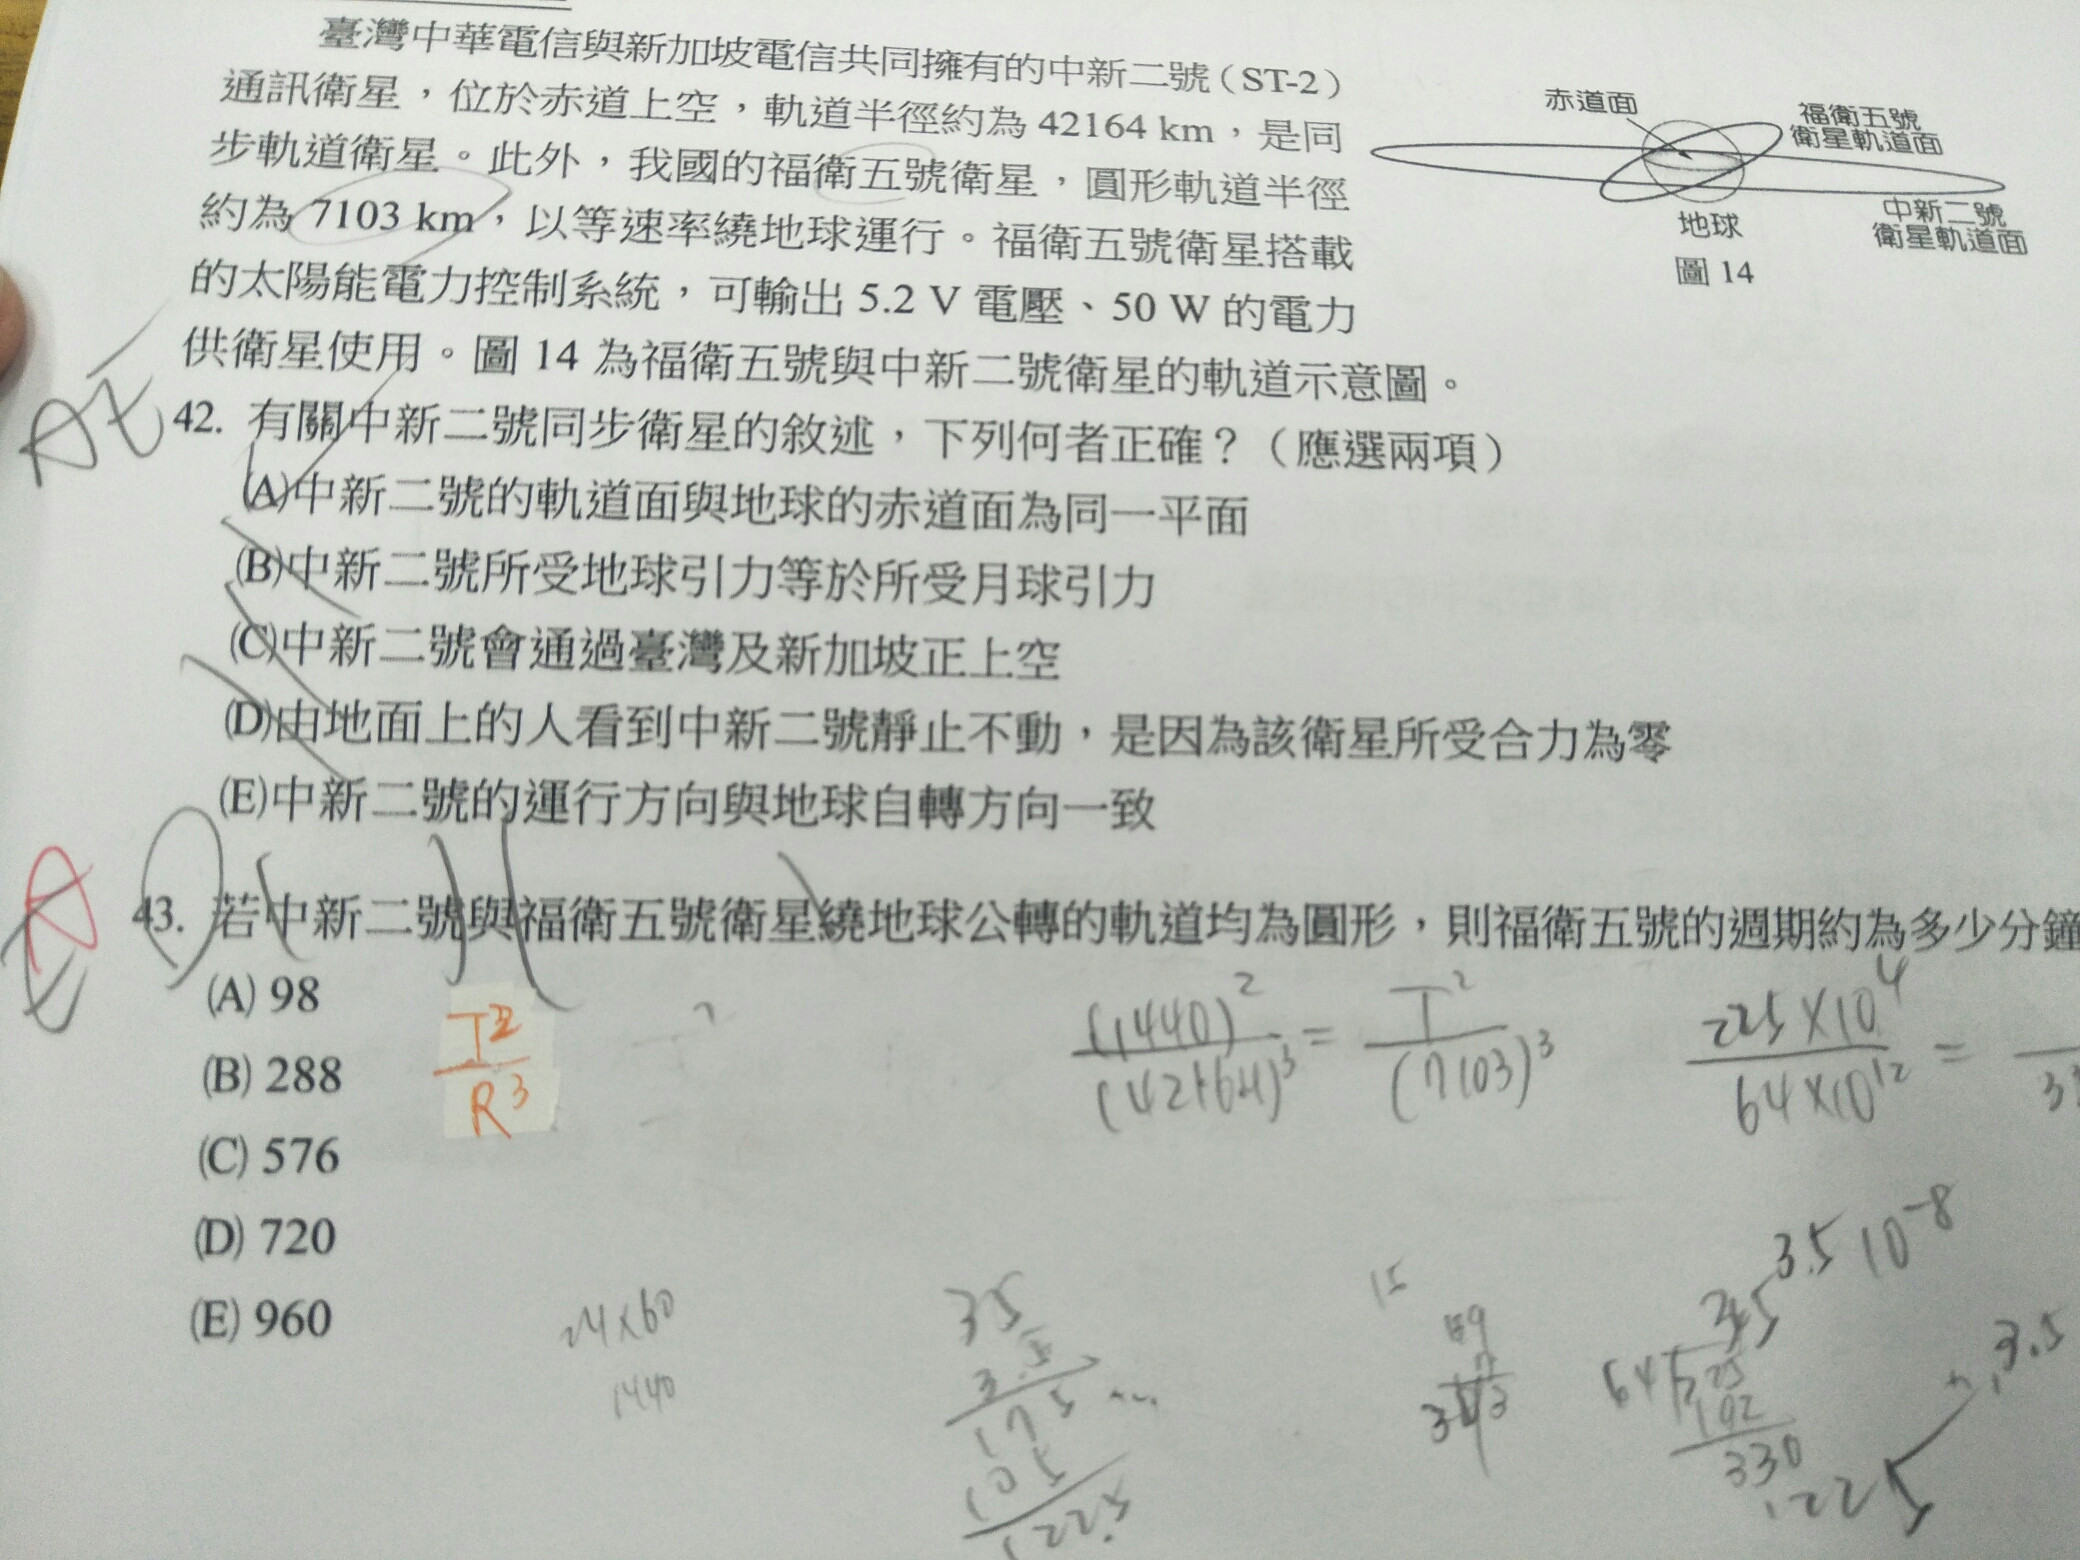 臺灣中華電信與新加坡電信共同擁有的中新二號（ST-2）
通訊衛星，位於赤道上空，軌道半徑約為 42164 km，是同
步軌道衛星。此外，我國的福衛五號衛星，圓形軌道半徑
約為 7103 km，以等速率繞地球運行。福衛五號衛星搭載
的太陽能電力控制系統，可輸出 5.2 V 電壓、50 W 的電力
供衛星使用。圖 14 為福衛五號與中新二號衛星的軌道示意圖。
赤道面
福衛五號
衛星軌道面
地球
中新二號
衛星軌道面
圖 14
AE
42. 有關中新二號同步衛星的敘述，下列何者正確？（應選兩項）
(A)中新二號的軌道面與地球的赤道面為同一平面
(B)中新二號所受地球引力等於所受月球引力
(C)中新二號會通過臺灣及新加坡正上空
(D)由地面上的人看到中新二號靜止不動，是因為該衛星所受合力為零
(E)中新二號的運行方向與地球自轉方向一致
A
43. 若中新二號與福衛五號衛星繞地球公轉的軌道均為圓形，則福衛五號的週期約為多少分鐘
(A) 98
(B) 288
(C) 576
(D) 720
(E) 960
R³
(1440)² / (42164)³ = T² / (7103)³
225×10⁴ / 64×10¹² =
24×60
1440
35
3.5
175
105
122.5
15
3.5 10⁻⁸
64
225
192
330
3.5
1225